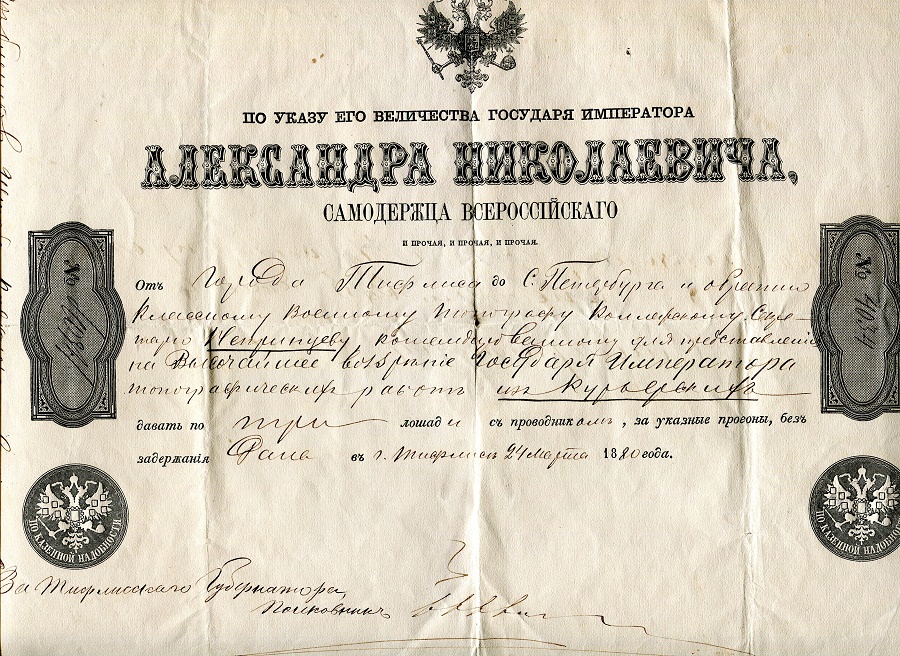 ПО УКАЗУ ЕГО ВЕЛИЧЕСТВА ГОСУДАРЯ ИМПЕРАТОРА
АЛЕКСАНДРА НИКОЛАЕВИЧА,
САМОДЕРЖЦА ВСЕРОССІЙСКАГО
И ПРОЧАЯ, И ПРОЧАЯ, И ПРОЧАЯ.
Отъ Города Тифлиса до С. Петербурга и обратно
Классному Военному Топографу Коллежскому Секре-
тарю Непринцеву, командированному для представленія
на Высочайшее воззрѣніе Государя Императора
топографическихъ работъ изъ курьерскихъ
давать по три лошади съ проводникомъ, за указные прогоны, безъ
задержанія Дана въ г. Тифлисѣ 24 Марта 1880 года.
№
№ 4034
ПО КАЗЕННОЙ НАДОБНОСТИ
ПО КАЗЕННОЙ НАДОБНОСТИ
За Тифлисскаго Губернатора,
Полковникъ